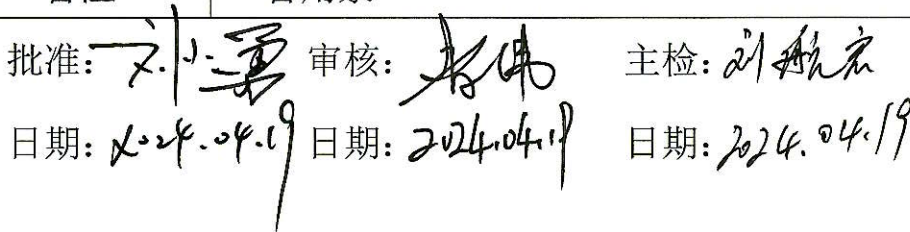 批准：刘小勇 审核： 主检：刘航宏
日期：2024.04.19 日期：2024.04.19 日期：2024.04.19